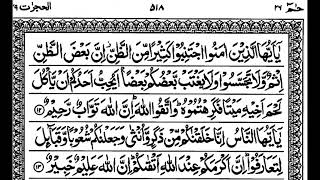 الحجرٰت ٤٩ ٥١٨ حٰمٓ ٢٦
يٰۤاَيُّهَا الَّذِيْنَ اٰمَنُوا اجْتَنِبُوْا كَثِيْرًا مِّنَ الظَّنِّ اِنَّ بَعْضَ الظَّنِّ
اِثْمٌ وَّلَا تَجَسَّسُوْا وَلَا يَغْتَبْ بَّعْضُكُمْ بَعْضًا اَيُحِبُّ اَحَدُكُمْ اَنْ يَّاْكُلَ
لَحْمَ اَخِيْهِ مَيْتًا فَكَرِهْتُمُوْهُ وَاتَّقُوا اللّٰهَ اِنَّ اللّٰهَ تَوَّابٌ رَّحِيْمٌ ۝١٢
يٰۤاَيُّهَا النَّاسُ اِنَّا خَلَقْنٰكُمْ مِّنْ ذَكَرٍ وَّاُنْثٰى وَجَعَلْنٰكُمْ شُعُوْبًا وَّقَبَآئِلَ
لِتَعَارَفُوْا اِنَّ اَكْرَمَكُمْ عِنْدَ اللّٰهِ اَتْقٰىكُمْ اِنَّ اللّٰهَ عَلِيْمٌ خَبِيْرٌ ۝١٣